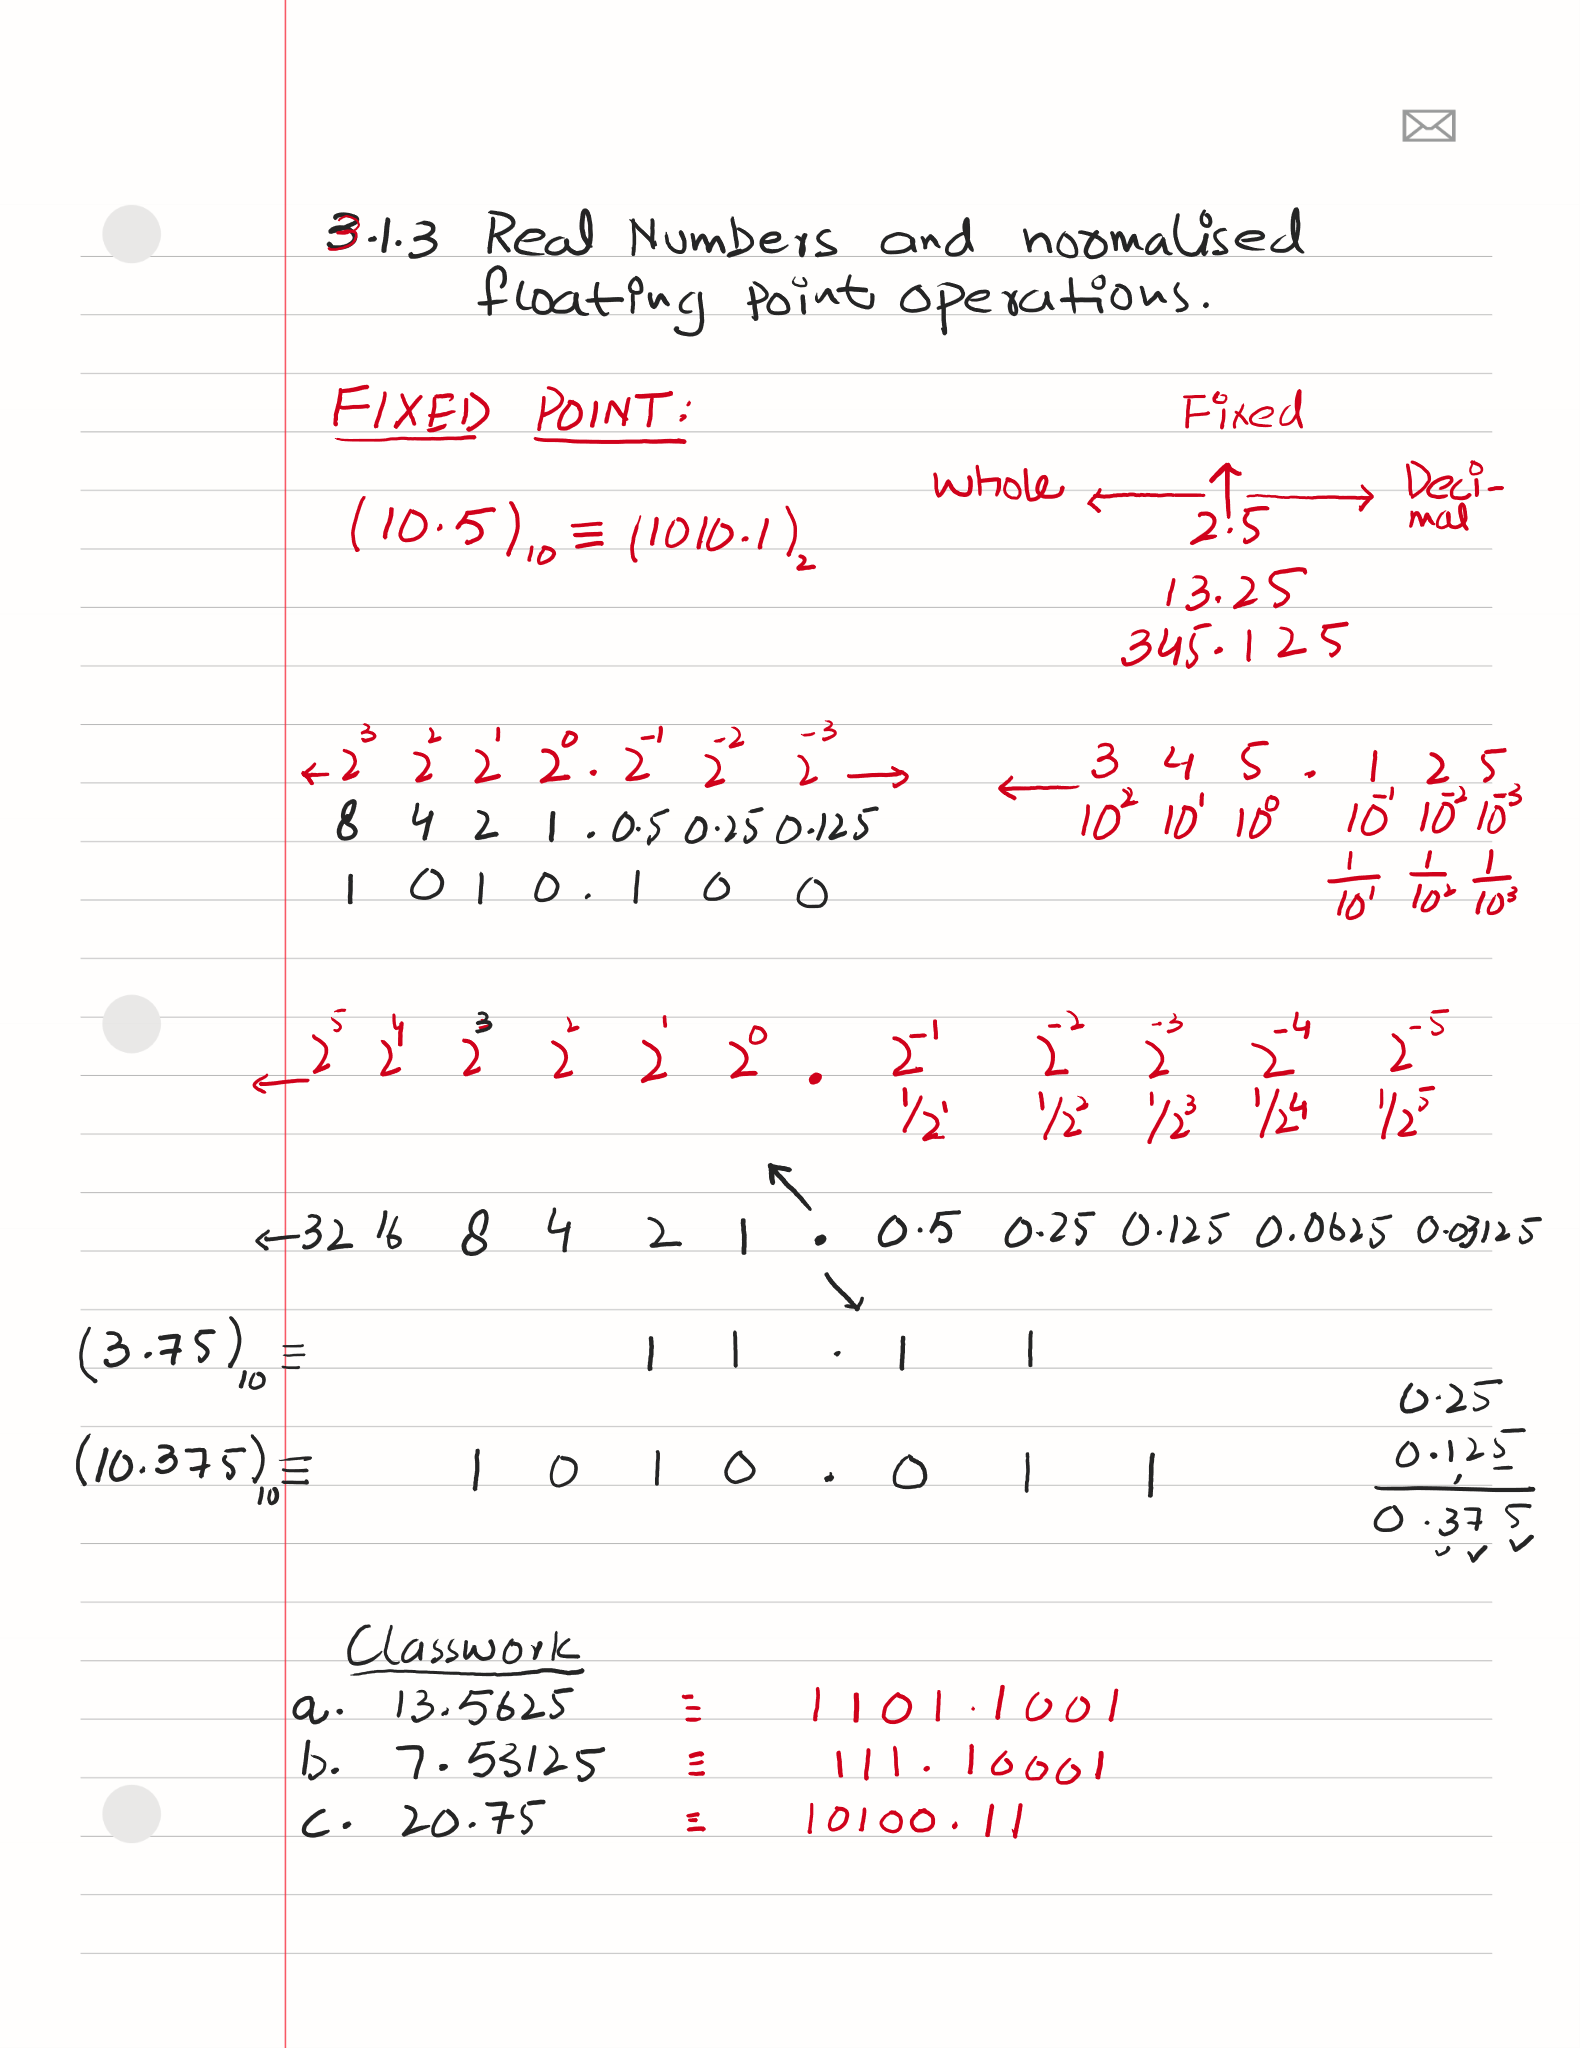 3.1.3 Real Numbers and normalised
floating point operations.
FIXED POINT:
Fixed
Whole ← ↑ → Deci-
mal
2.5
(10.5)₁₀ ≡ (1010.1)₂
13.25
345.125
← 2³ 2² 2¹ 2⁰ . 2⁻¹ 2⁻² 2⁻³ →
8 4 2 1 . 0.5 0.25 0.125
1 0 1 0 . 1 0 0
← 3 4 5 . 1 2 5
10² 10¹ 10⁰ 10⁻¹ 10⁻² 10⁻³
1/10¹ 1/10² 1/10³
← 2⁵ 2⁴ 2³ 2² 2¹ 2⁰ . 2⁻¹ 2⁻² 2⁻³ 2⁻⁴ 2⁻⁵
1/2¹ 1/2² 1/2³ 1/2⁴ 1/2⁵
← 32 16 8 4 2 1 . 0.5 0.25 0.125 0.0625 0.03125
(3.75)₁₀ ≡ 1 1 . 1 1
(10.375)₁₀ ≡ 1 0 1 0 . 0 1 1
0.25
0.125
0.375
Classwork
a. 13.5625 ≡ 1101.1001
b. 7.53125 ≡ 111.10001
c. 20.75 ≡ 10100.11